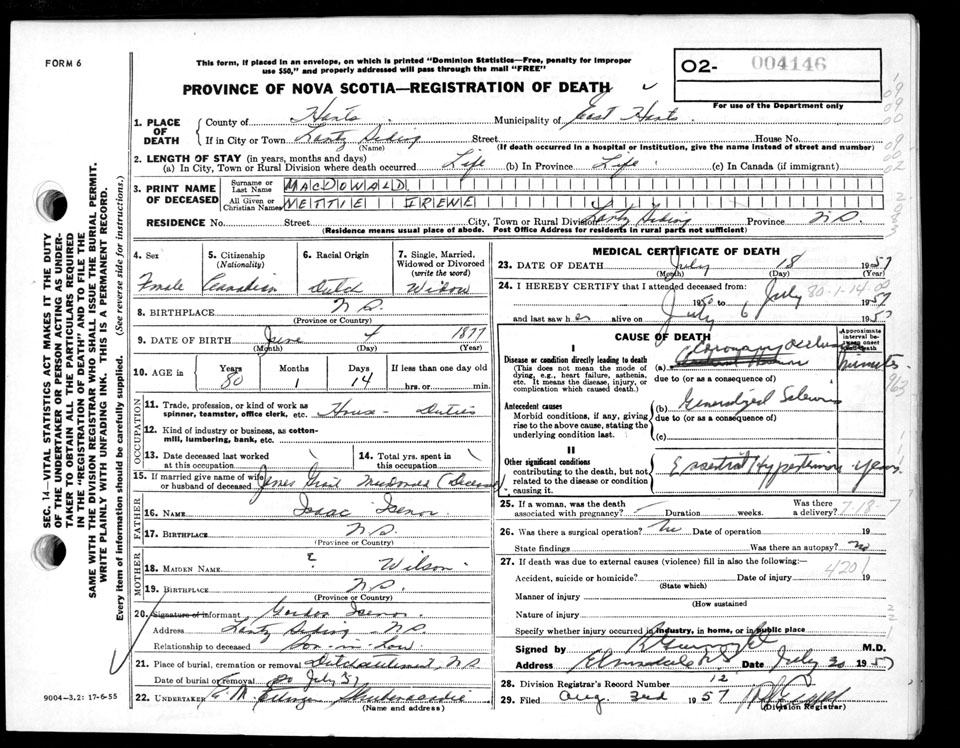 FORM 6
This form, if placed in an envelope, on which is printed "Dominion Statistics—Free, penalty for improper
use $50," and properly addressed will pass through the mail "FREE"
PROVINCE OF NOVA SCOTIA—REGISTRATION OF DEATH
O2- 004146
For use of the Department only
1. PLACE OF DEATH
County of Hants Municipality of East Hants
If in City or Town Lantz Siding Street House No.
(Name) (If death occurred in a hospital or institution, give the name instead of street and number)
2. LENGTH OF STAY (in years, months and days)
(a) In City, Town or Rural Division where death occurred Life (b) In Province Life (c) In Canada (if immigrant)
3. PRINT NAME OF DECEASED
Surname or Last Name MACDONALD
All Given or Christian Names METTIE IRENE
RESIDENCE No. Street City, Town or Rural Division Lantz Siding Province N.S.
(Residence means usual place of abode. Post Office Address for residents in rural parts not sufficient)
4. Sex Female
5. Citizenship (Nationality) Canadian
6. Racial Origin Dutch
7. Single, Married, Widowed or Divorced (write the word) Widow
8. BIRTHPLACE N.S.
(Province or Country)
9. DATE OF BIRTH June 4 1877
(Month) (Day) (Year)
10. AGE in Years 80 Months 1 Days 14 If less than one day old hrs. or min.
OCCUPATION
11. Trade, profession, or kind of work as spinner, teamster, office clerk, etc. House - Duties
12. Kind of industry or business, as cotton-mill, lumbering, bank, etc.
13. Date deceased last worked at this occupation
14. Total yrs. spent in this occupation
15. If married give name of wife or husband of deceased James Grant Macdonald (Deceased
FATHER
16. NAME Isaac Isenor
17. BIRTHPLACE N.S.
(Province or Country)
MOTHER
18. MAIDEN NAME E Wilson
19. BIRTHPLACE N.S.
(Province or Country)
20. Signature of informant Gordon Isenor
Address Lantz Siding N.S.
Relationship to deceased Son-in-Law
21. Place of burial, cremation or removal Dutch Settlement, N.S.
Date of burial or removal 20 July 57
22. UNDERTAKER Shubenacadie
(Name and address)
MEDICAL CERTIFICATE OF DEATH
23. DATE OF DEATH July 18 1957
(Month) (Day) (Year)
24. I HEREBY CERTIFY that I attended deceased from:
1950 to July 1957
and last saw her alive on July 6 1957
CAUSE OF DEATH
Approximate interval between onset and death
I
Disease or condition directly leading to death (a) Coronary occlusion minutes
(This does not mean the mode of dying, e.g., heart failure, asthenia, etc. It means the disease, injury, or complication which caused death.)
due to (or as a consequence of)
Antecedent causes (b) Generalized Sclerosis
Morbid conditions, if any, giving rise to the above cause, stating the underlying condition last.
due to (or as a consequence of)
(c)
II
Other significant conditions Essential Hypertension years
contributing to the death, but not related to the disease or condition causing it.
25. If a woman, was the death associated with pregnancy? Duration weeks. Was there a delivery? 7-18-7
26. Was there a surgical operation? No Date of operation 19
State findings Was there an autopsy? no
27. If death was due to external causes (violence) fill in also the following:—
4201
Accident, suicide or homicide? Date of injury 19
(State which)
Manner of injury
(How sustained
Nature of injury
Specify whether injury occurred in industry, in home, or in public place
Signed by M.D.
Address Elmsdale N.S. Date July 20 1957
28. Division Registrar's Record Number 12
29. Filed Aug. 3rd 1957
(Division Registrar)
SEC. 14—VITAL STATISTICS ACT MAKES IT THE DUTY
OF THE UNDERTAKER OR PERSON ACTING AS UNDER-
TAKER TO OBTAIN ALL THE PARTICULARS REQUIRED
IN THE "REGISTRATION OF DEATH" AND TO FILE THE
SAME WITH THE DIVISION REGISTRAR WHO SHALL ISSUE THE BURIAL PERMIT.
WRITE PLAINLY WITH UNFADING INK. THIS IS A PERMANENT RECORD.
Every item of information should be carefully supplied. (See reverse side for instructions.)
9004-3.2: 17-6-55